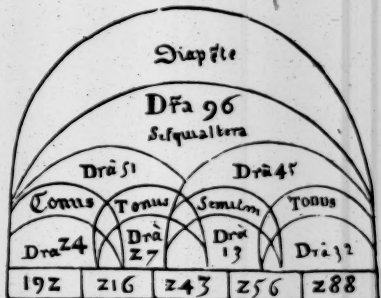 Diapẽte
Dr̃a 96
Sesquialtera
Drã 51 Drã 45
Tonus Tonus Semitm Tonus
Dra 24 Drã 27 Drã 13 Drã 32
192 216 243 256 288